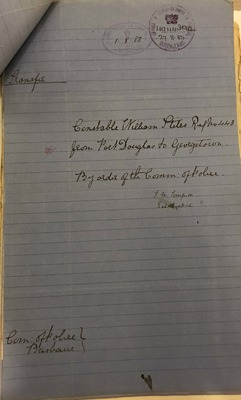 1 8 88
Transfer
Constable William States Reg No 443
from Port Douglas to Georgetown.
By order of the Comm. of Police.
Com. of Police
Brisbane